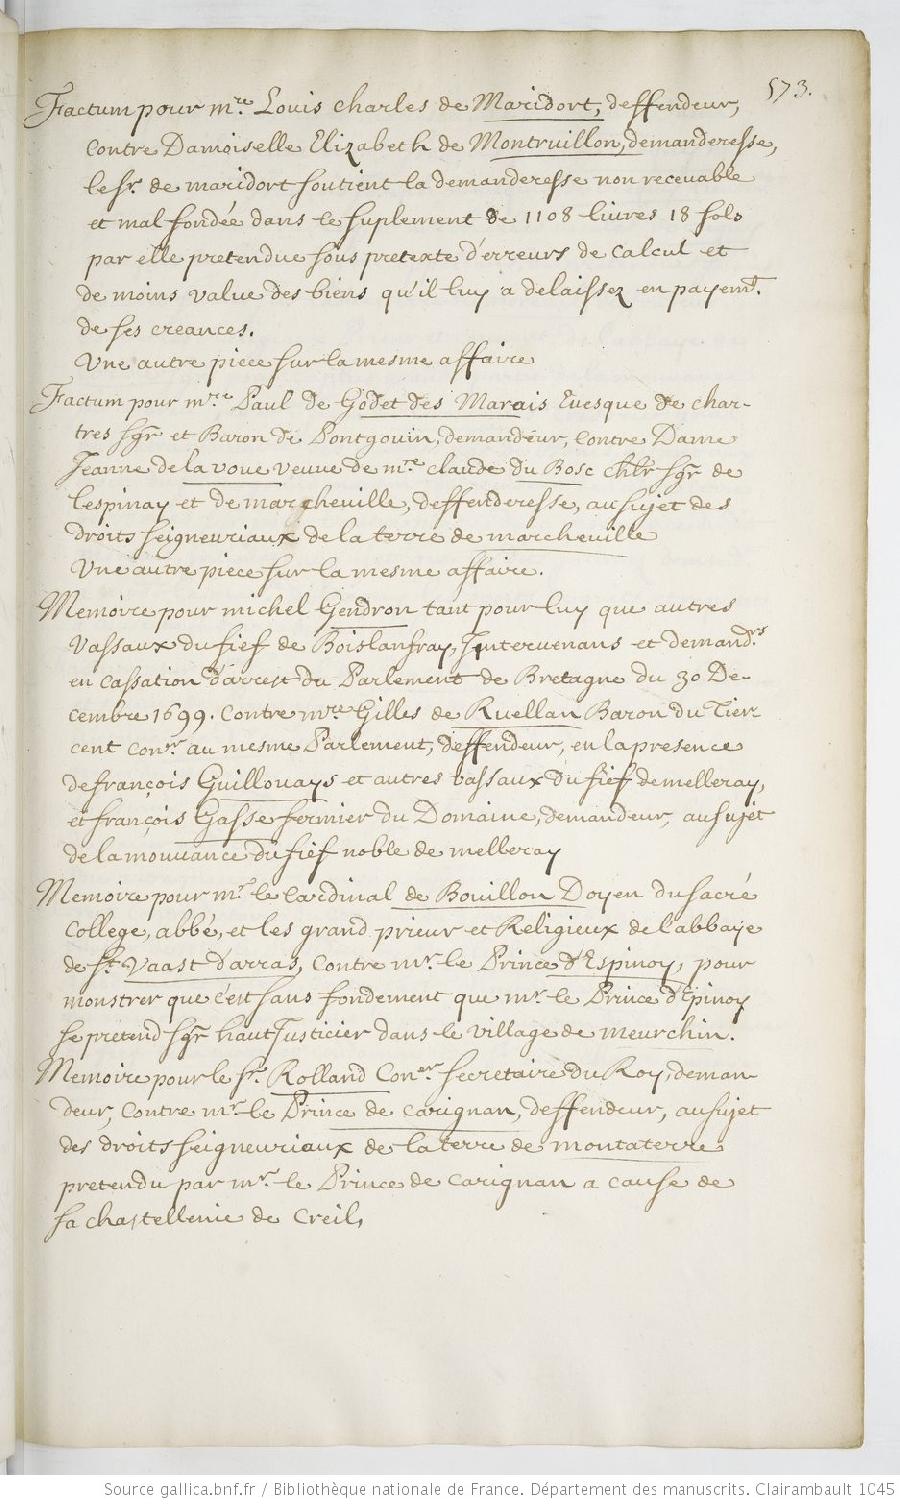 573.
Factum pour mre Louis charles de Maridort, deffendeur,
contre Damoiselle Elizabeth de Montruillon, demanderesse,
le Sr. de maridort soutient la demanderesse non recevable
et mal fondée dans le suplement de 1108 livres 18 sols
par elle pretendue sous pretexte d'erreurs de calcul et
de moins value des biens qu'il luy a delaissez en payemt.
de ses creances.
Une autre piece sur la mesme affaire
Factum pour mre Paul de Godet des Marais Evesque de char-
tres sgr et Baron de Pontgouin, demandeur, contre Dame
Jeanne de la voue veuve de mre claude du Bosc chlr sgr de
lespinay et de marcheville, deffenderesse, au sujet des
droits seigneuriaux de la terre de marcheville
Une autre piece sur la mesme affaire.
Memoire pour michel Gendron tant pour luy que autres
vassaux du fief de Boislanfray, Intervenans et demandrs
en cassation d'arrest du Parlement de Bretagne du 30 De-
cembre 1699. Contre mre Gilles de Ruellan Baron du Tier
cent Conr. au mesme Parlement, deffendeur, en la presence
de françois Guillouays et autres vassaux du fief de melleray,
et françois Gasse fermier du Domaine, demandeur, au sujet
de la mouvance du fief noble de melleray
Memoire pour mr. le Cardinal de Bouillon Doyen du sacré
College, abbé, et les grand prieur et Religieux de l'abbaye
de St. Vaast d'arras, contre mr. le Prince d'Espinoy, pour
monstrer que c'est sans fondement que mr. le Prince d'Epinoy
se pretend sgr haut Justicier dans le village de meurchin.
Memoire pour le Sr. Rolland Coner. Secretaire du Roy, deman-
deur, Contre mr. le Prince de carignan, deffendeur, au sujet
des droits seigneuriaux de la terre de montaterre
pretendu par mr. le Prince de carignan a cause de
sa chastellenie de Creil,
Source gallica.bnf.fr / Bibliothèque nationale de France. Département des manuscrits. Clairambault 1045